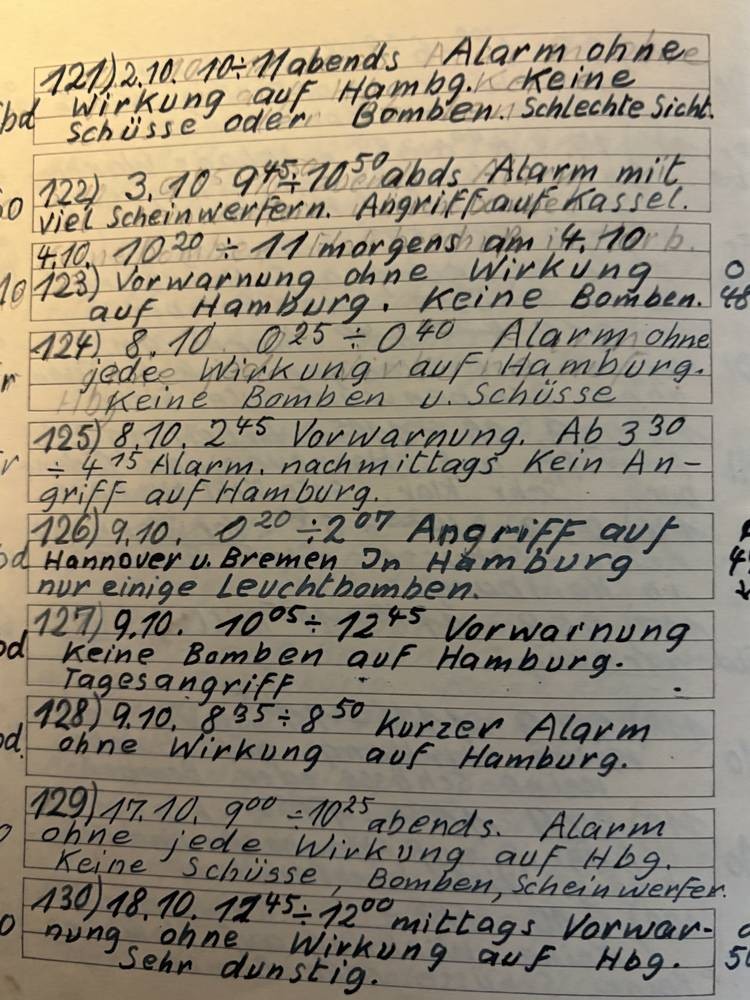 121) 2.10. 10÷11 abends Alarm ohne
Wirkung auf Hambg. Keine
Schüsse oder Bomben. Schlechte Sicht.
122) 3.10 9⁴⁵÷10⁵⁰ abds Alarm mit
viel Scheinwerfern. Angriff auf Kassel.
4.10. 10²⁰ ÷ 11 morgens am 4.10
123) Vorwarnung ohne Wirkung
auf Hamburg. Keine Bomben.
124) 8.10 0²⁵ ÷ 0⁴⁰ Alarm ohne
jede Wirkung auf Hamburg.
Keine Bomben u. Schüsse
125) 8.10. 2⁴⁵ Vorwarnung. Ab 3³⁰
÷ 4¹⁵ Alarm. nachmittags Kein An-
griff auf Hamburg.
126) 9.10. 0²⁰ ÷ 2⁰⁷ Angriff auf
Hannover u. Bremen In Hamburg
nur einige Leuchtbomben.
127) 9.10. 10⁰⁵ ÷ 12⁴⁵ Vorwarnung
Keine Bomben auf Hamburg.
Tagesangriff
128) 9.10. 8³⁵ ÷ 8⁵⁰ Kurzer Alarm
ohne Wirkung auf Hamburg.
129) 17.10. 9⁰⁰ ÷ 10²⁵ abends. Alarm
ohne jede Wirkung auf Hbg.
Keine Schüsse, Bomben, Scheinwerfer.
130) 18.10. ÷ 12⁰⁰ mittags Vorwar-
nung ohne Wirkung auf Hbg.
Sehr dunstig.